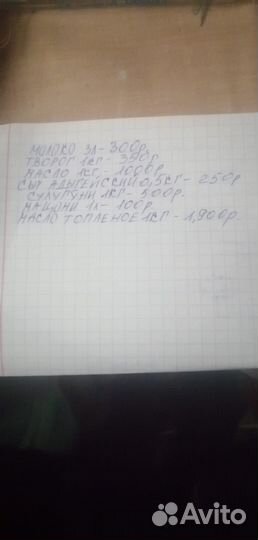 МОЛОКО 3Л-300р.
ТВОРОГ 1КГ-350р.
МАСЛО 1КГ-1000р.
СЫР АДЫГЕЙССИЙ 0,5КГ-250р
СУЛУГУНИ 1КГ-500р.
МАЦОНИ 1Л-100р.
МАСЛО ТОПЛЕНОЕ 1КГ-1,900р.
Avito